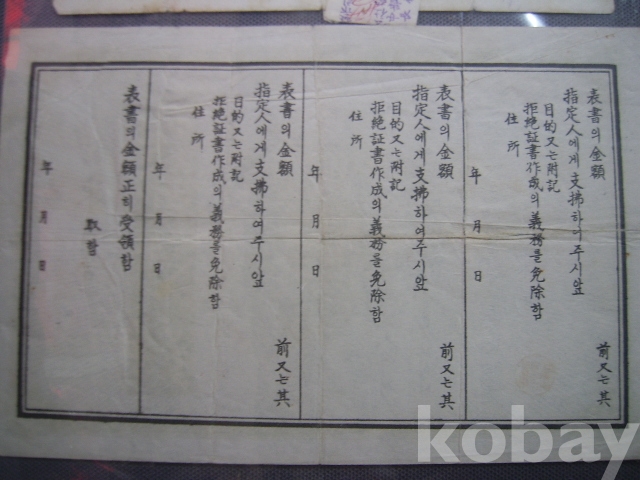 表書의 金額
前 又는 其
指定人에게 支拂하여주시앞
目的又는附記
拒絶証書作成의 義務를 免除함
住所
年 月 日
表書의 金額
前 又는 其
指定人에게 支拂하여주시앞
目的又는附記
拒絶証書作成의 義務를 免除함
住所
年 月 日
表書의 金額
前 又는 其
指定人에게 支拂하여주시앞
目的又는附記
拒絶証書作成의 義務를 免除함
住所
年 月 日
表書의 金額正히 受領함
取함
年 月 日
kobay